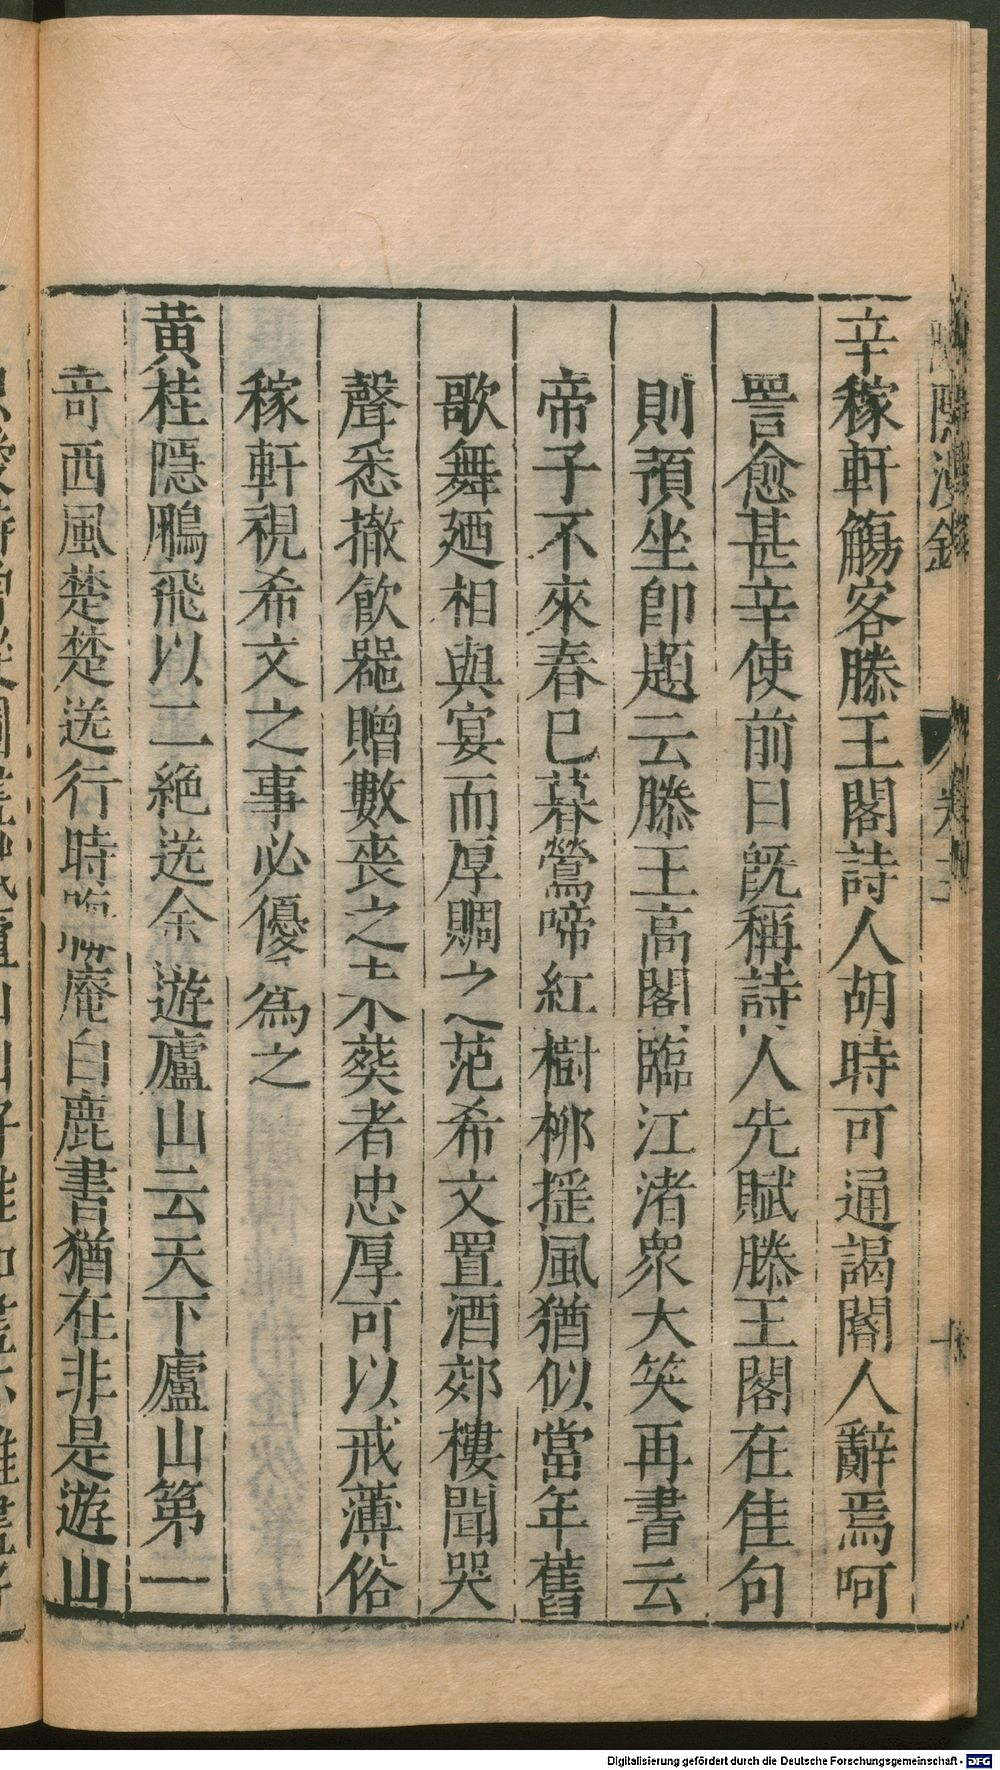 辛稼軒觴客滕王閣詩人胡時可通謁閽人辭焉呵
詈愈甚辛使前曰旣稱詩人先賦滕王閣在佳句
則預坐卽題云滕王高閣臨江渚衆大笑再書云
帝子不來春已暮鶯啼紅樹柳揺風猶似當年舊
歌舞廼相與宴而厚賙之范希文置酒郊樓聞哭
聲悉撤飲噐贈數喪之未葬者忠厚可以戒薄俗
稼軒視希文之事必優爲之
黃桂隠鵰飛以二絶送余遊廬山云天下廬山第一
竒西風楚楚送行時 庵白鹿書猶在非是遊山
Digitalisierung gefördert durch die Deutsche Forschungsgemeinschaft - DFG